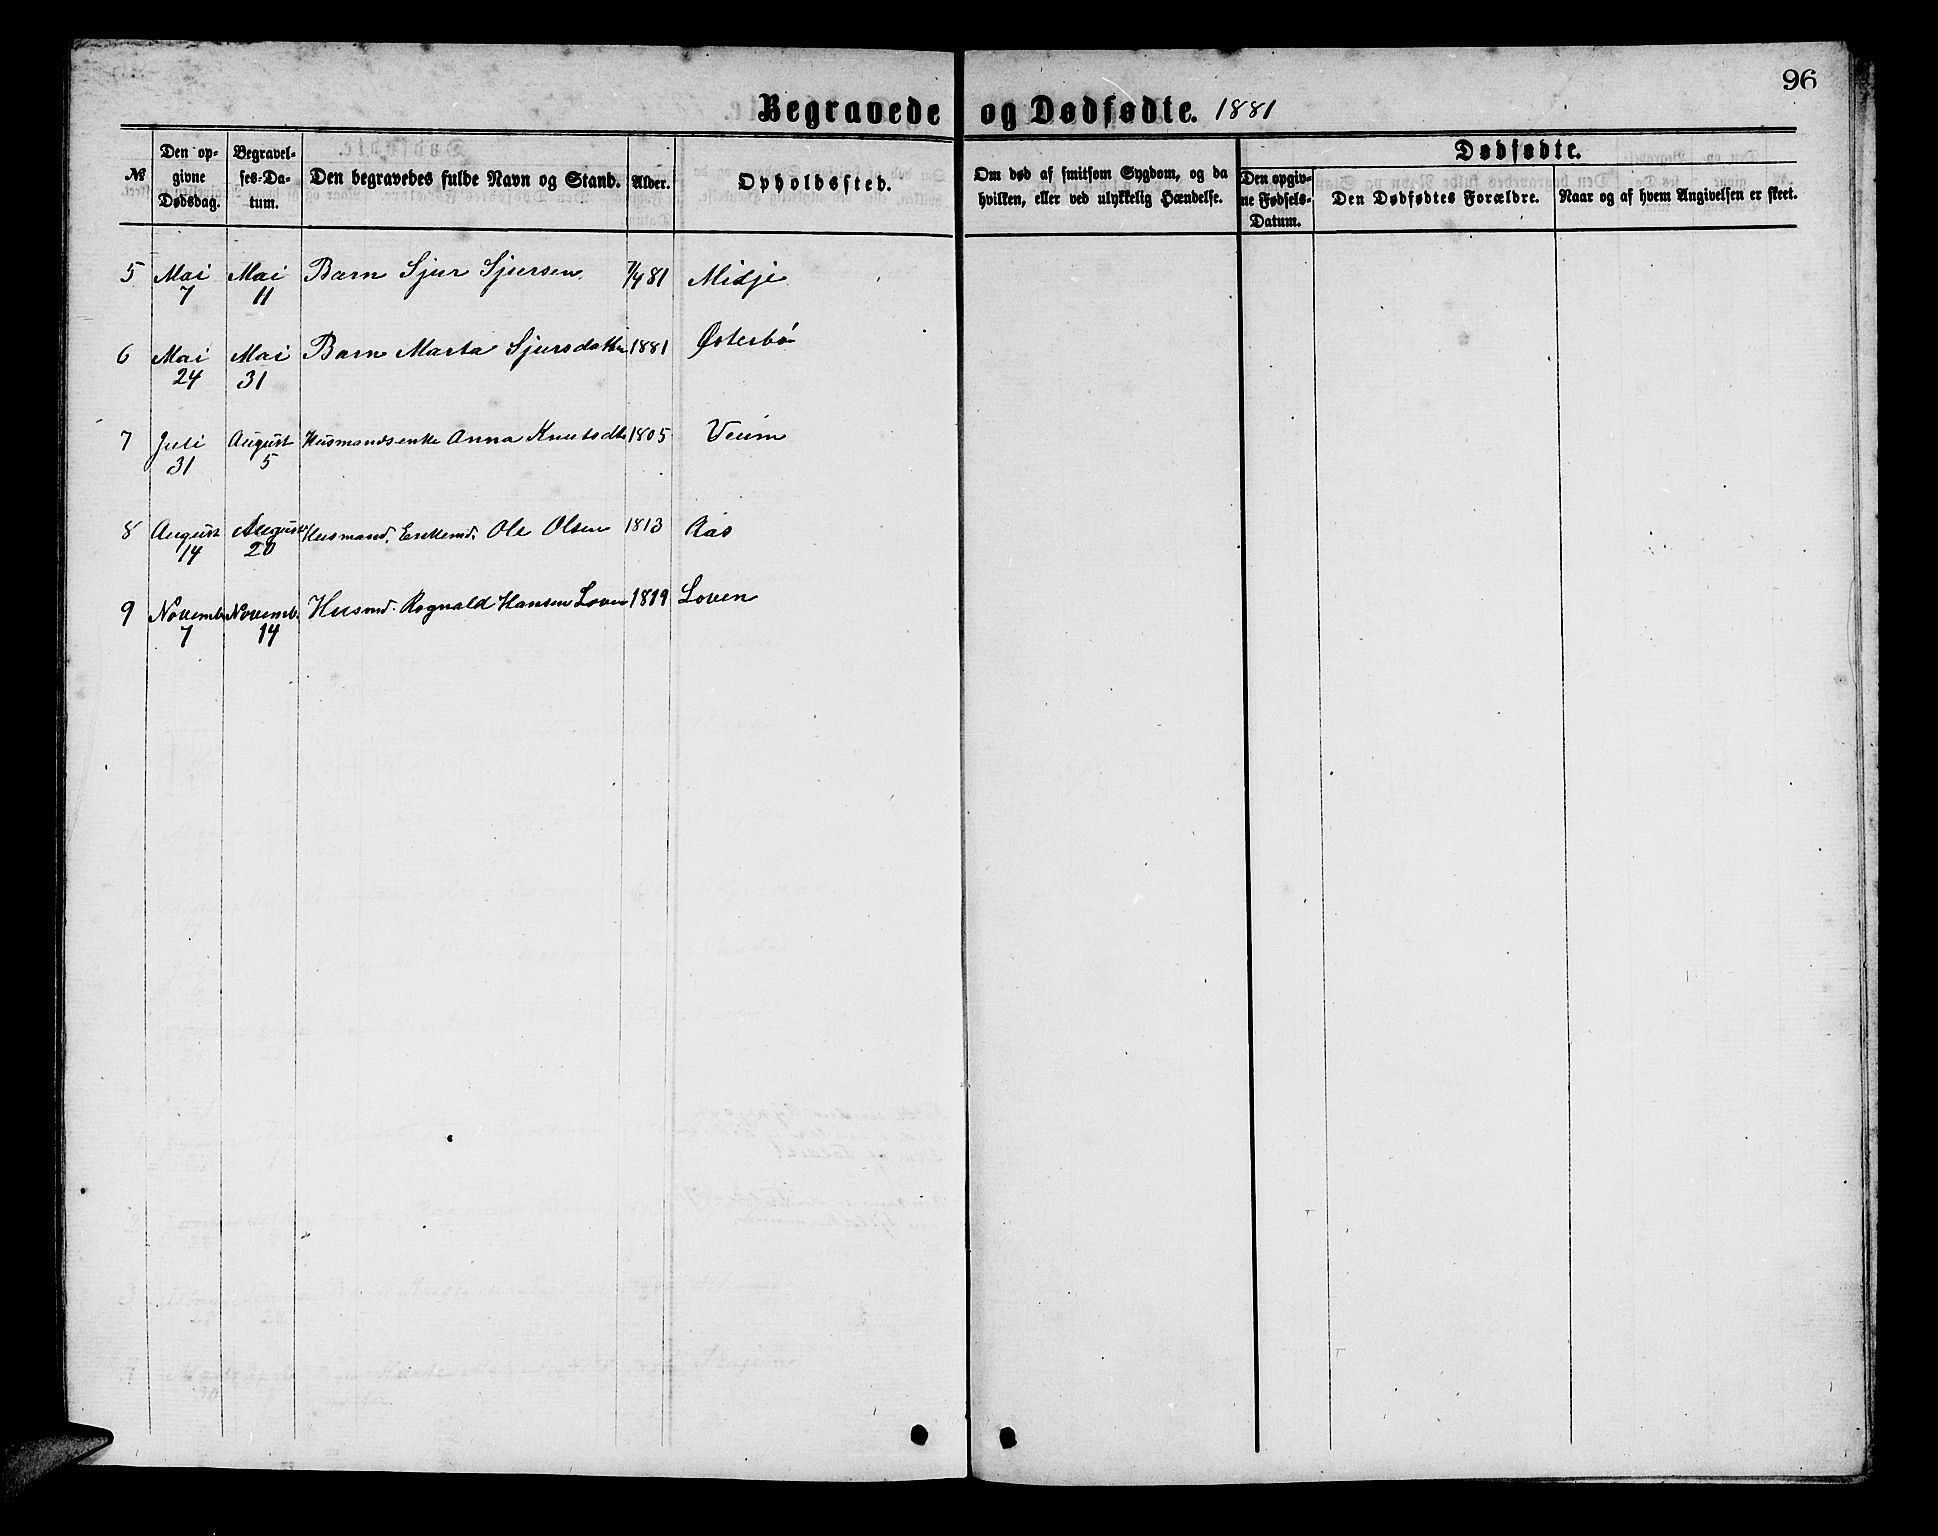 96
Begravede og Dødfødte. 1881
№
Den op-
givne
Dødsdag.
Begravel-
ses-Da-
tum.
Den begravedes fulde Navn og Stand.
Alder.
Opholdssted.
Om død af smitsom Sygdom, og da
hvilken, eller ved ulykkelig Hændelse.
Dødfødte.
Den opgiv-
ne Fødsels-
Datum.
Den Dødfødtes Forældre.
Naar og af hvem Angivelsen er skeet.
5 Mai 7 Mai 11 Barn Sjur Sjursen 7/4 81 Midje
6 Mai 24 Mai 31 Barn Marta Sjursdatter 1881 Østerbö
7 Juli 31 August 5 Husmandsenke Anna Knutsdtr 1805 Veum
8 August 14 August 20 Husmand. Enkemd. Ole Olsen 1813 Aas
9 Novemb 7 Novemb. 14 Husmd. Rognald Hansen Loven 1819 Loven